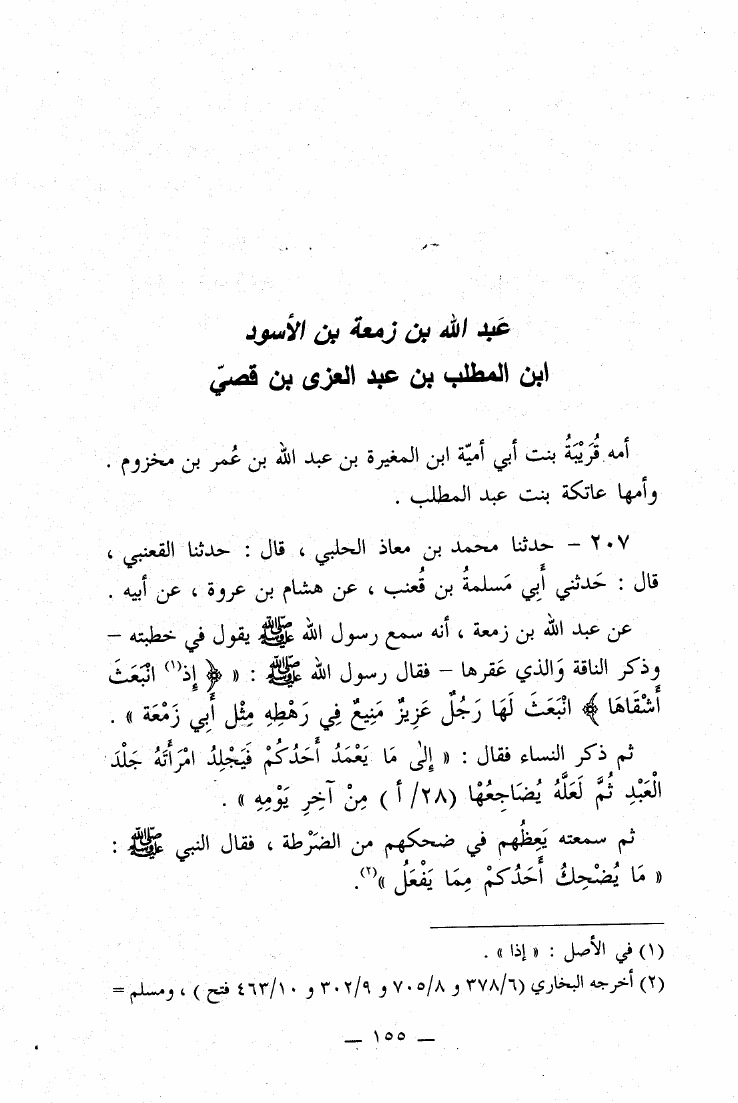 عَبد الله بن زمعة بن الأسود
ابن المطلب بن عبد العزى بن قصيّ
أمه قُرَيْبَةُ بنت أبي أميّة ابن المغيرة بن عبد الله بن عُمر بن مخزوم .
وأمها عاتكة بنت عبد المطلب .
٢٠٧ – حدثنا محمد بن معاذ الحلبي ، قال : حدثنا القعنبي ،
قال : حَدثني أَبي مَسلمةُ بن قُعنب ، عن هشام بن عروة ، عن أبيه .
عن عبد الله بن زمعة ، أنه سمع رسول الله ﷺ يقول في خطبته –
وذكر الناقة وَالذي عَقرها – فقال رسول الله ﷺ : « ﴿ إِذ(١) انْبَعَثَ
أَشْقَاهَا ﴾ انْبَعَثَ لَهَا رَجُلٌ عَزِيزٌ مَنِيعٌ فِي رَهْطِهِ مِثْل أَبي زَمْعَة » .
ثم ذكر النساء فقال : « إِلى مَا يَعْمَدُ أَحَدُكُمْ فَيَجْلِدُ امْرَأَتَهُ جَلْدَ
الْعَبْدِ ثُمَّ لَعَلَّهُ يُضَاجِعُهْا (٢٨/ أ ) مِنْ آخِرِ يَوْمِهِ » .
ثم سمعته يَعِظُهم في ضحكهم من الضَرْطة ، فقال النبي ﷺ :
« مَا يُضْحِكُ أَحَدُكُمْ مِمَا يَفْعَلُ »(٢).
(١) في الأصل : « إذا » .
(٢) أخرجه البخاري (٣٧٨/٦ و ٧٠٥/٨ و ٣٠٢/٩ و ٤٦٣/١٠ فتح ) ، ومسلم =
— ١٥٥ —